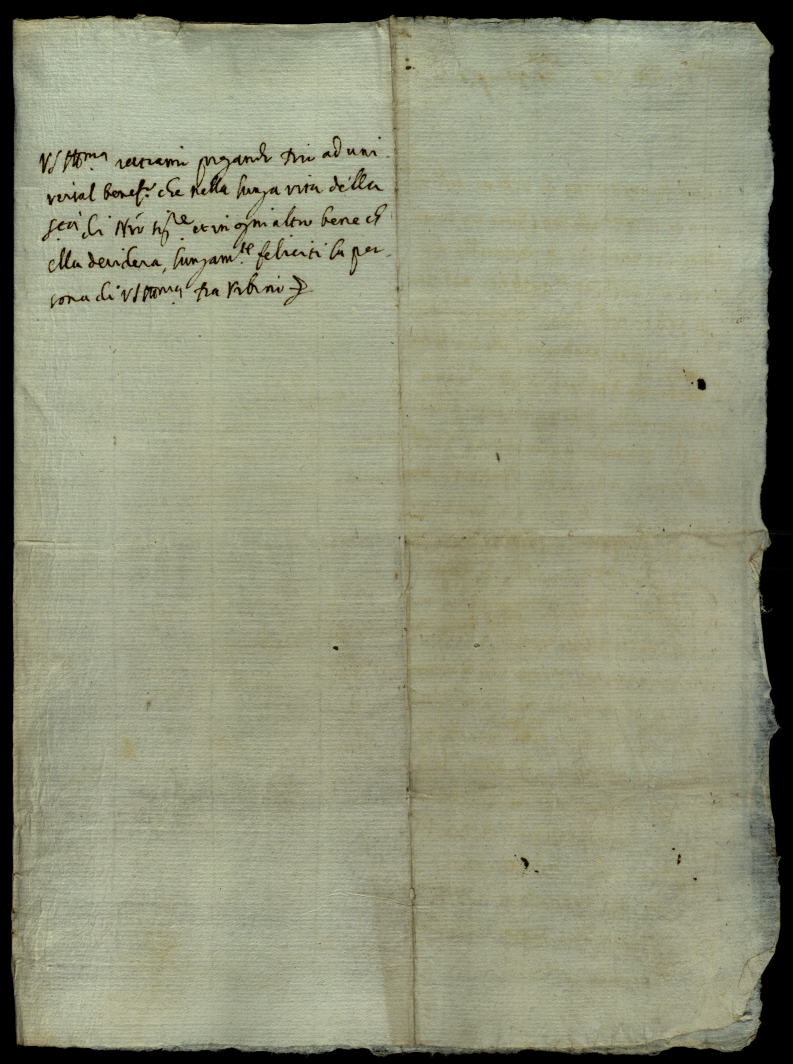 VS Ill.ma restiamo pregando Dio ad uni
versal benef.o che nella lunga vita della
S.tà di N.ro Sig.re et in ogni altro bene ch
ella desidera, lungam.te feliciti la per-
sona di VS Ill.ma Da Urbino